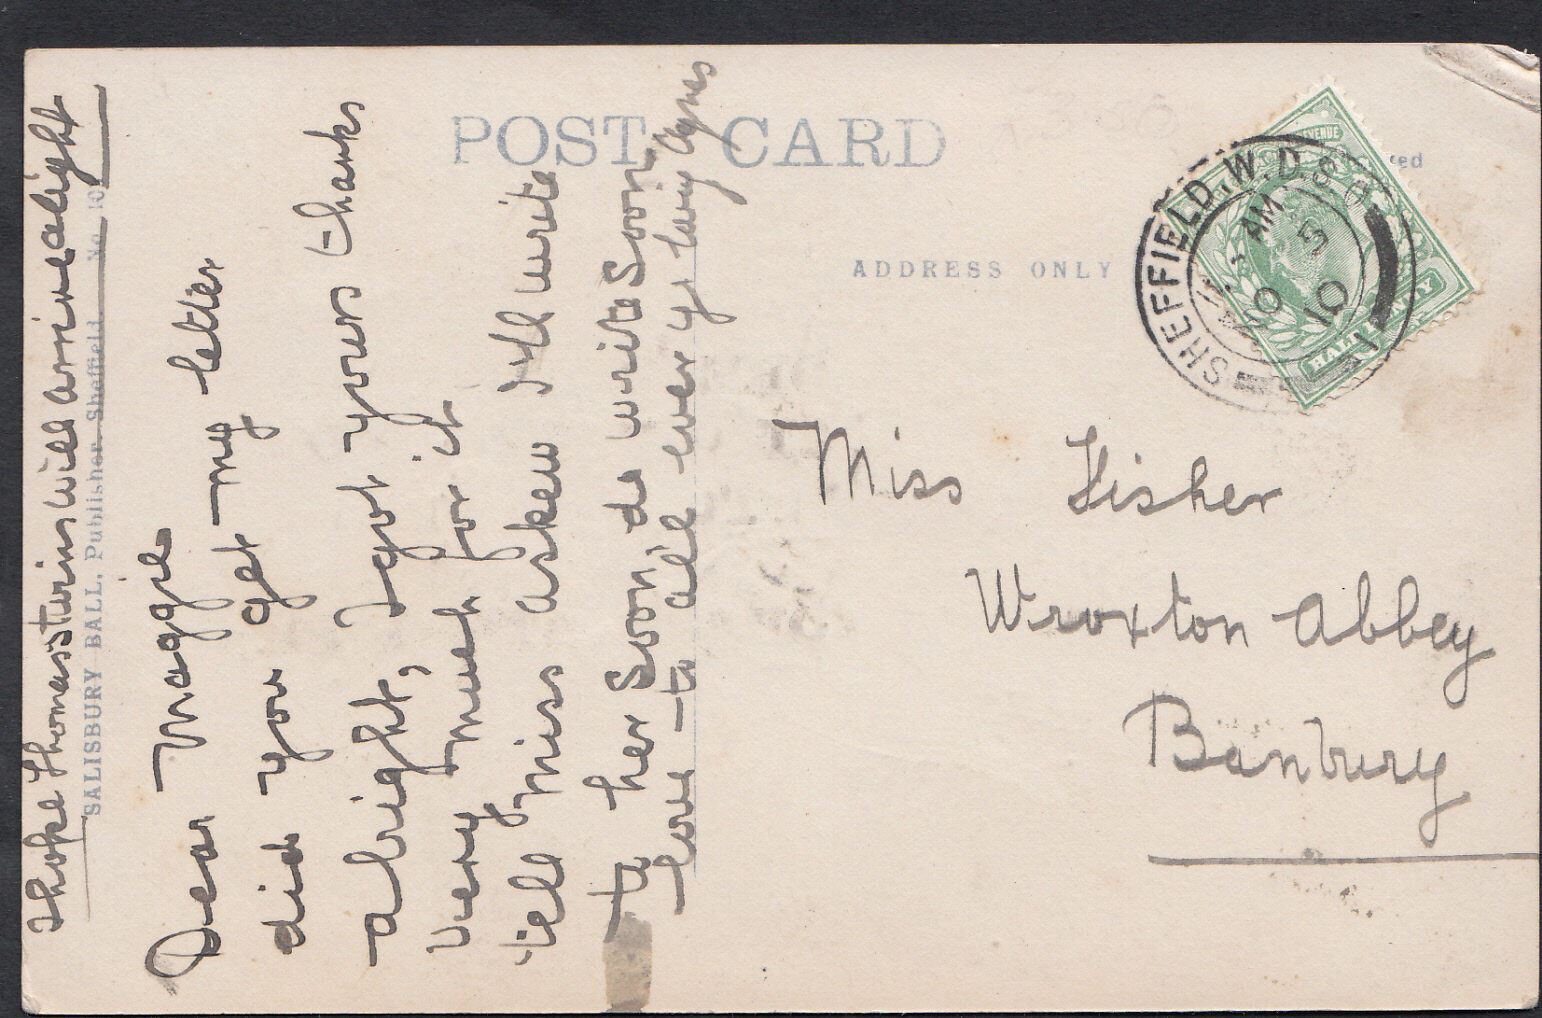 I hope Thomas twins will arrive alight
SALISBURY BALL, Publisher, Sheffield. No. 10
Dear Maggie
did you get my letter
alright, I got yours thanks
very much for it
tell Miss Askew Ill write
to her Soon do write Soon
love to all ever yr loving Agnes
POST CARD
ADDRESS ONLY
SHEFFIELD. W.D.
AM
5
10
HALFPENNY
Miss Fisher
Wroxton Abbey
Banbury